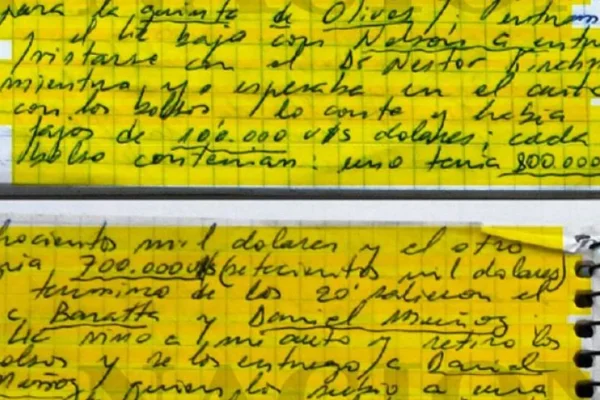 para la quinta de Olivos/. entram
y el Lic bajo con Nelson a entre
/vistarse con el Dr Nestor Kirchn
mientras, yo esperaba en el auto
con los bolsos /lo conte y habia
fajos de 100.000 u$s dolares; cada
/bolso contenian: uno tenia 800.000
hocientos mil dolares y el otro
nia 700.000u$s (setecientos mil dolares)
termino de los 20' salieron el
c Baratta y Daniel Muñoz
Lic vino a mi auto y retiro los
olsos y se los entrego /a Daniel
Muñoz/ quien los subio a una